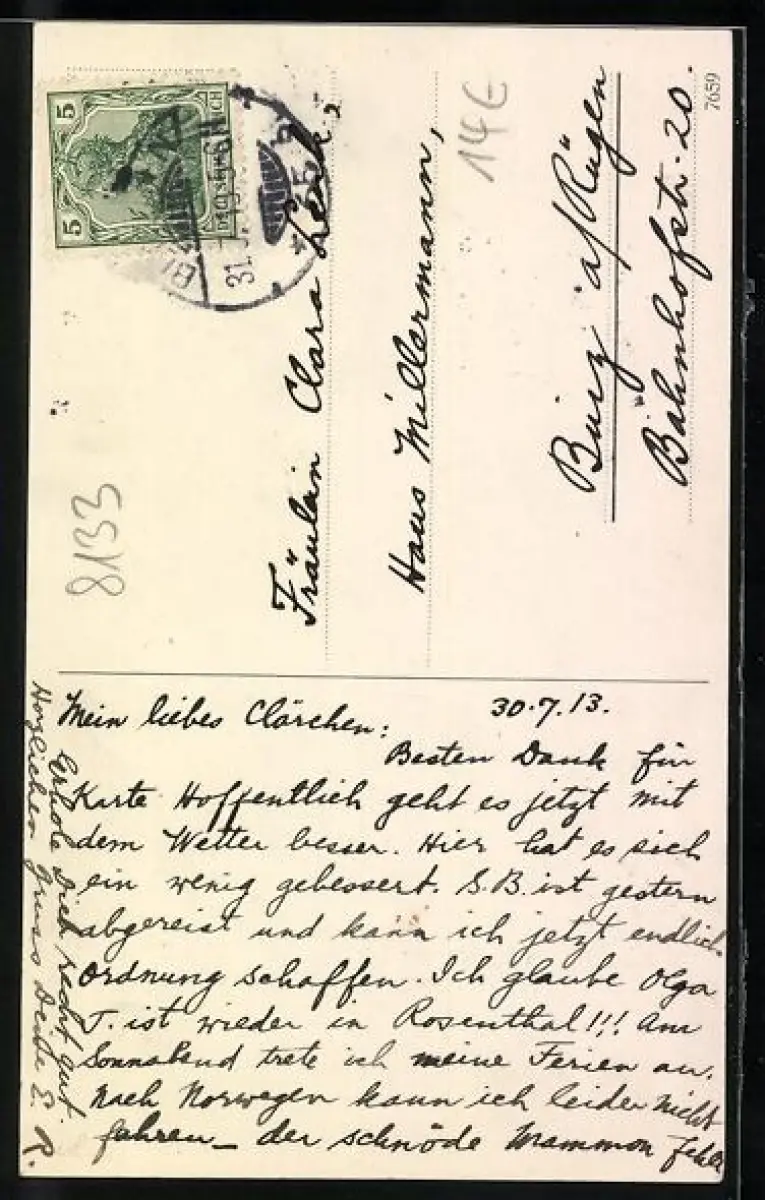 30.7.13.
Mein liebes Clärchen:
Besten Dank für
Karte Hoffentlich geht es jetzt mit
dem Wetter besser. Hier hat es sich
ein wenig gebessert. S.B. ist gestern
abgereist und kann ich jetzt endlich
Ordnung schaffen. Ich glaube Olga
T. ist wieder in Rosenthal!!! Am
Sonnabend trete ich meine Ferien an.
Nach Norwegen kann ich leider nicht
fahren – der schnöde Mammon fehlt
Erhole Dich recht gut.
Herzlichen Gruss Deine E. R.
Fräulein Clara
Haus Millermann,
Burg a/Rügen
Bahnhofstr. 20.
7659
14€
8133
5
5
31.7.13